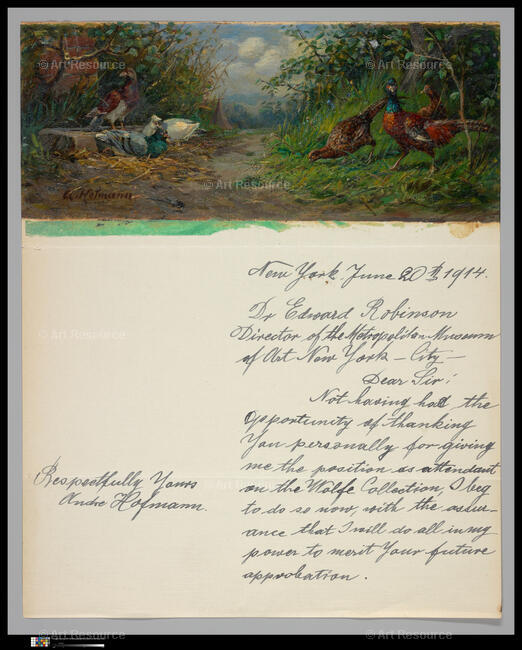 A. Hofmann
New York, June 20th 1914.
Dr Edward Robinson
Director of the Metropolitan Museum
of Art New York – City –
Dear Sir!
Not having had the
opportunity of thanking
You personally for giving
me the position as attendant
on the Wolfe Collection, I beg
to do so now, with the assur-
ance that I will do all in my
power to merit Your future
approbation.
Respectfully Yours
Andre Hofmann.
© Art Resource
© Art Resource
© Art Resource
© Art Resource
© Art Resource
© Art Resource
© Art Resource
© Art Resource
© Art Resource
© Art Resource
© Art Resource